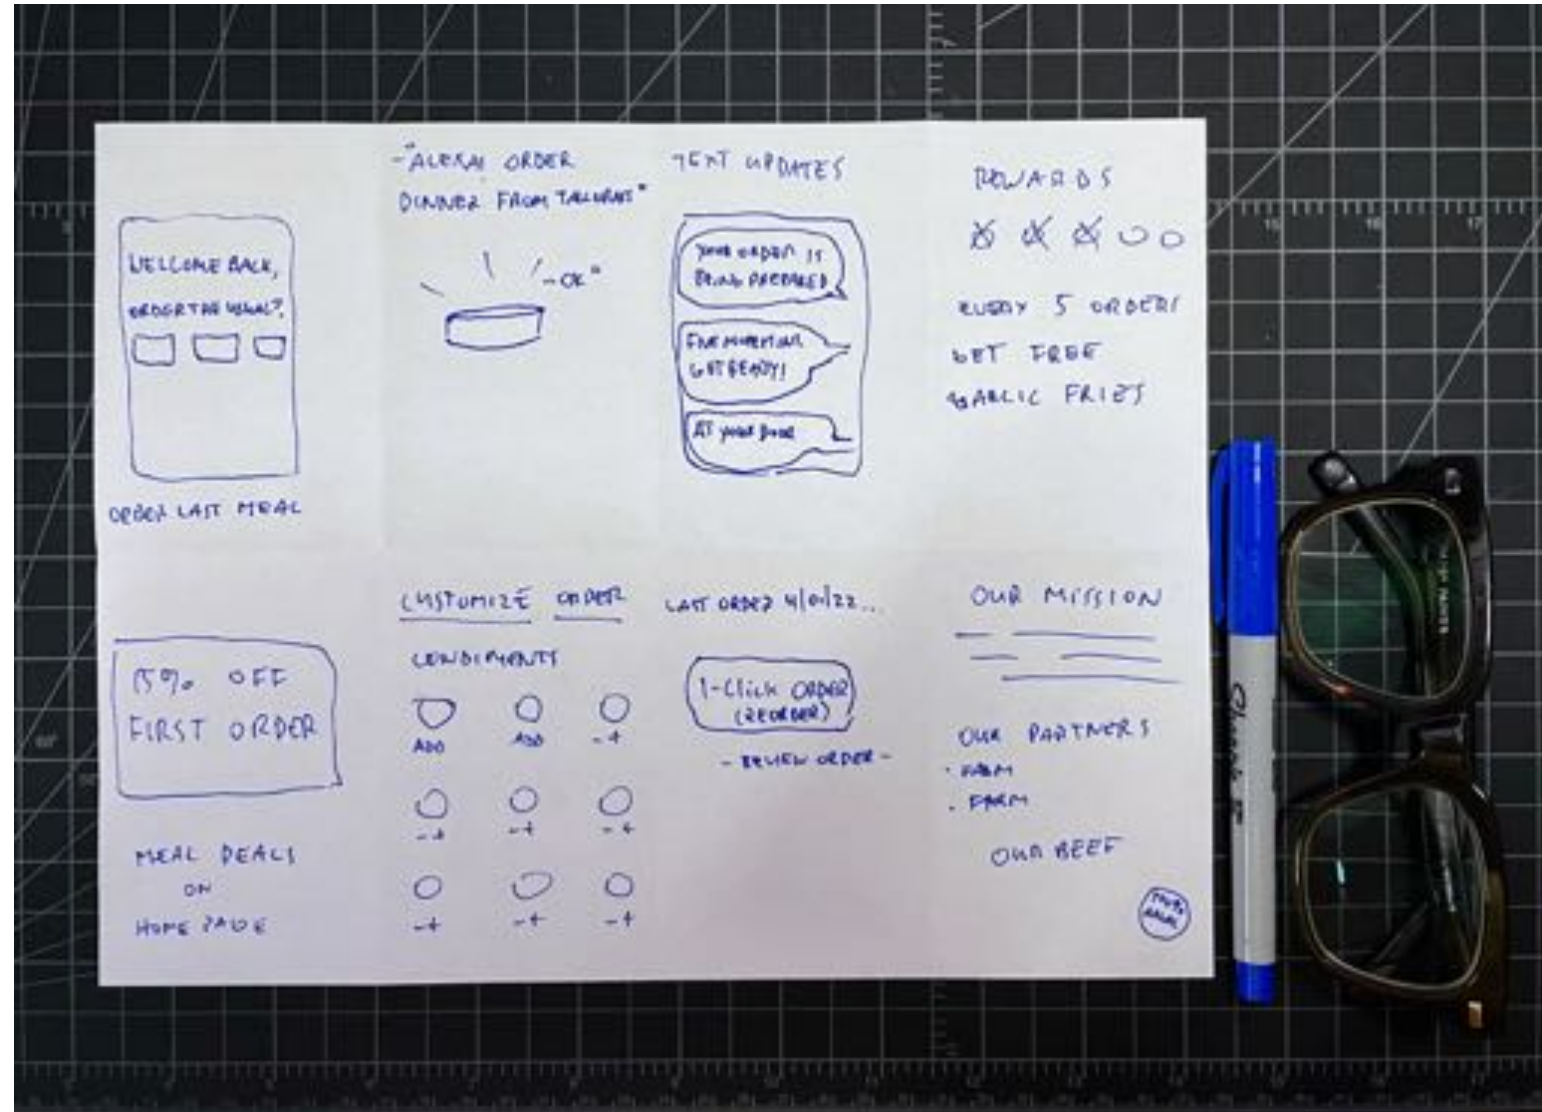 WELCOME BACK,
ORDER THE USUAL?
ORDER LAST MEAL
-"ALEXA! ORDER
DINNER FROM
-OK"
TEXT UPDATES
YOUR ORDER IS
BEING PREPARED
FIVE
GET READY!
AT YOUR DOOR
REWARDS
EVERY 5 ORDERS
GET FREE
GARLIC FRIES
15% OFF
FIRST ORDER
MEAL DEALS
ON
HOME PAGE
CUSTOMIZE ORDER
CONDIMENTS
ADD ADD - +
- + - + - +
- + - + - +
LAST ORDER 4/01/22...
1-CLICK ORDER
(REORDER)
- REVIEW ORDER -
OUR MISSION
OUR PARTNERS
· FARM
· FARM
OUR BEEF
100%
HALAL